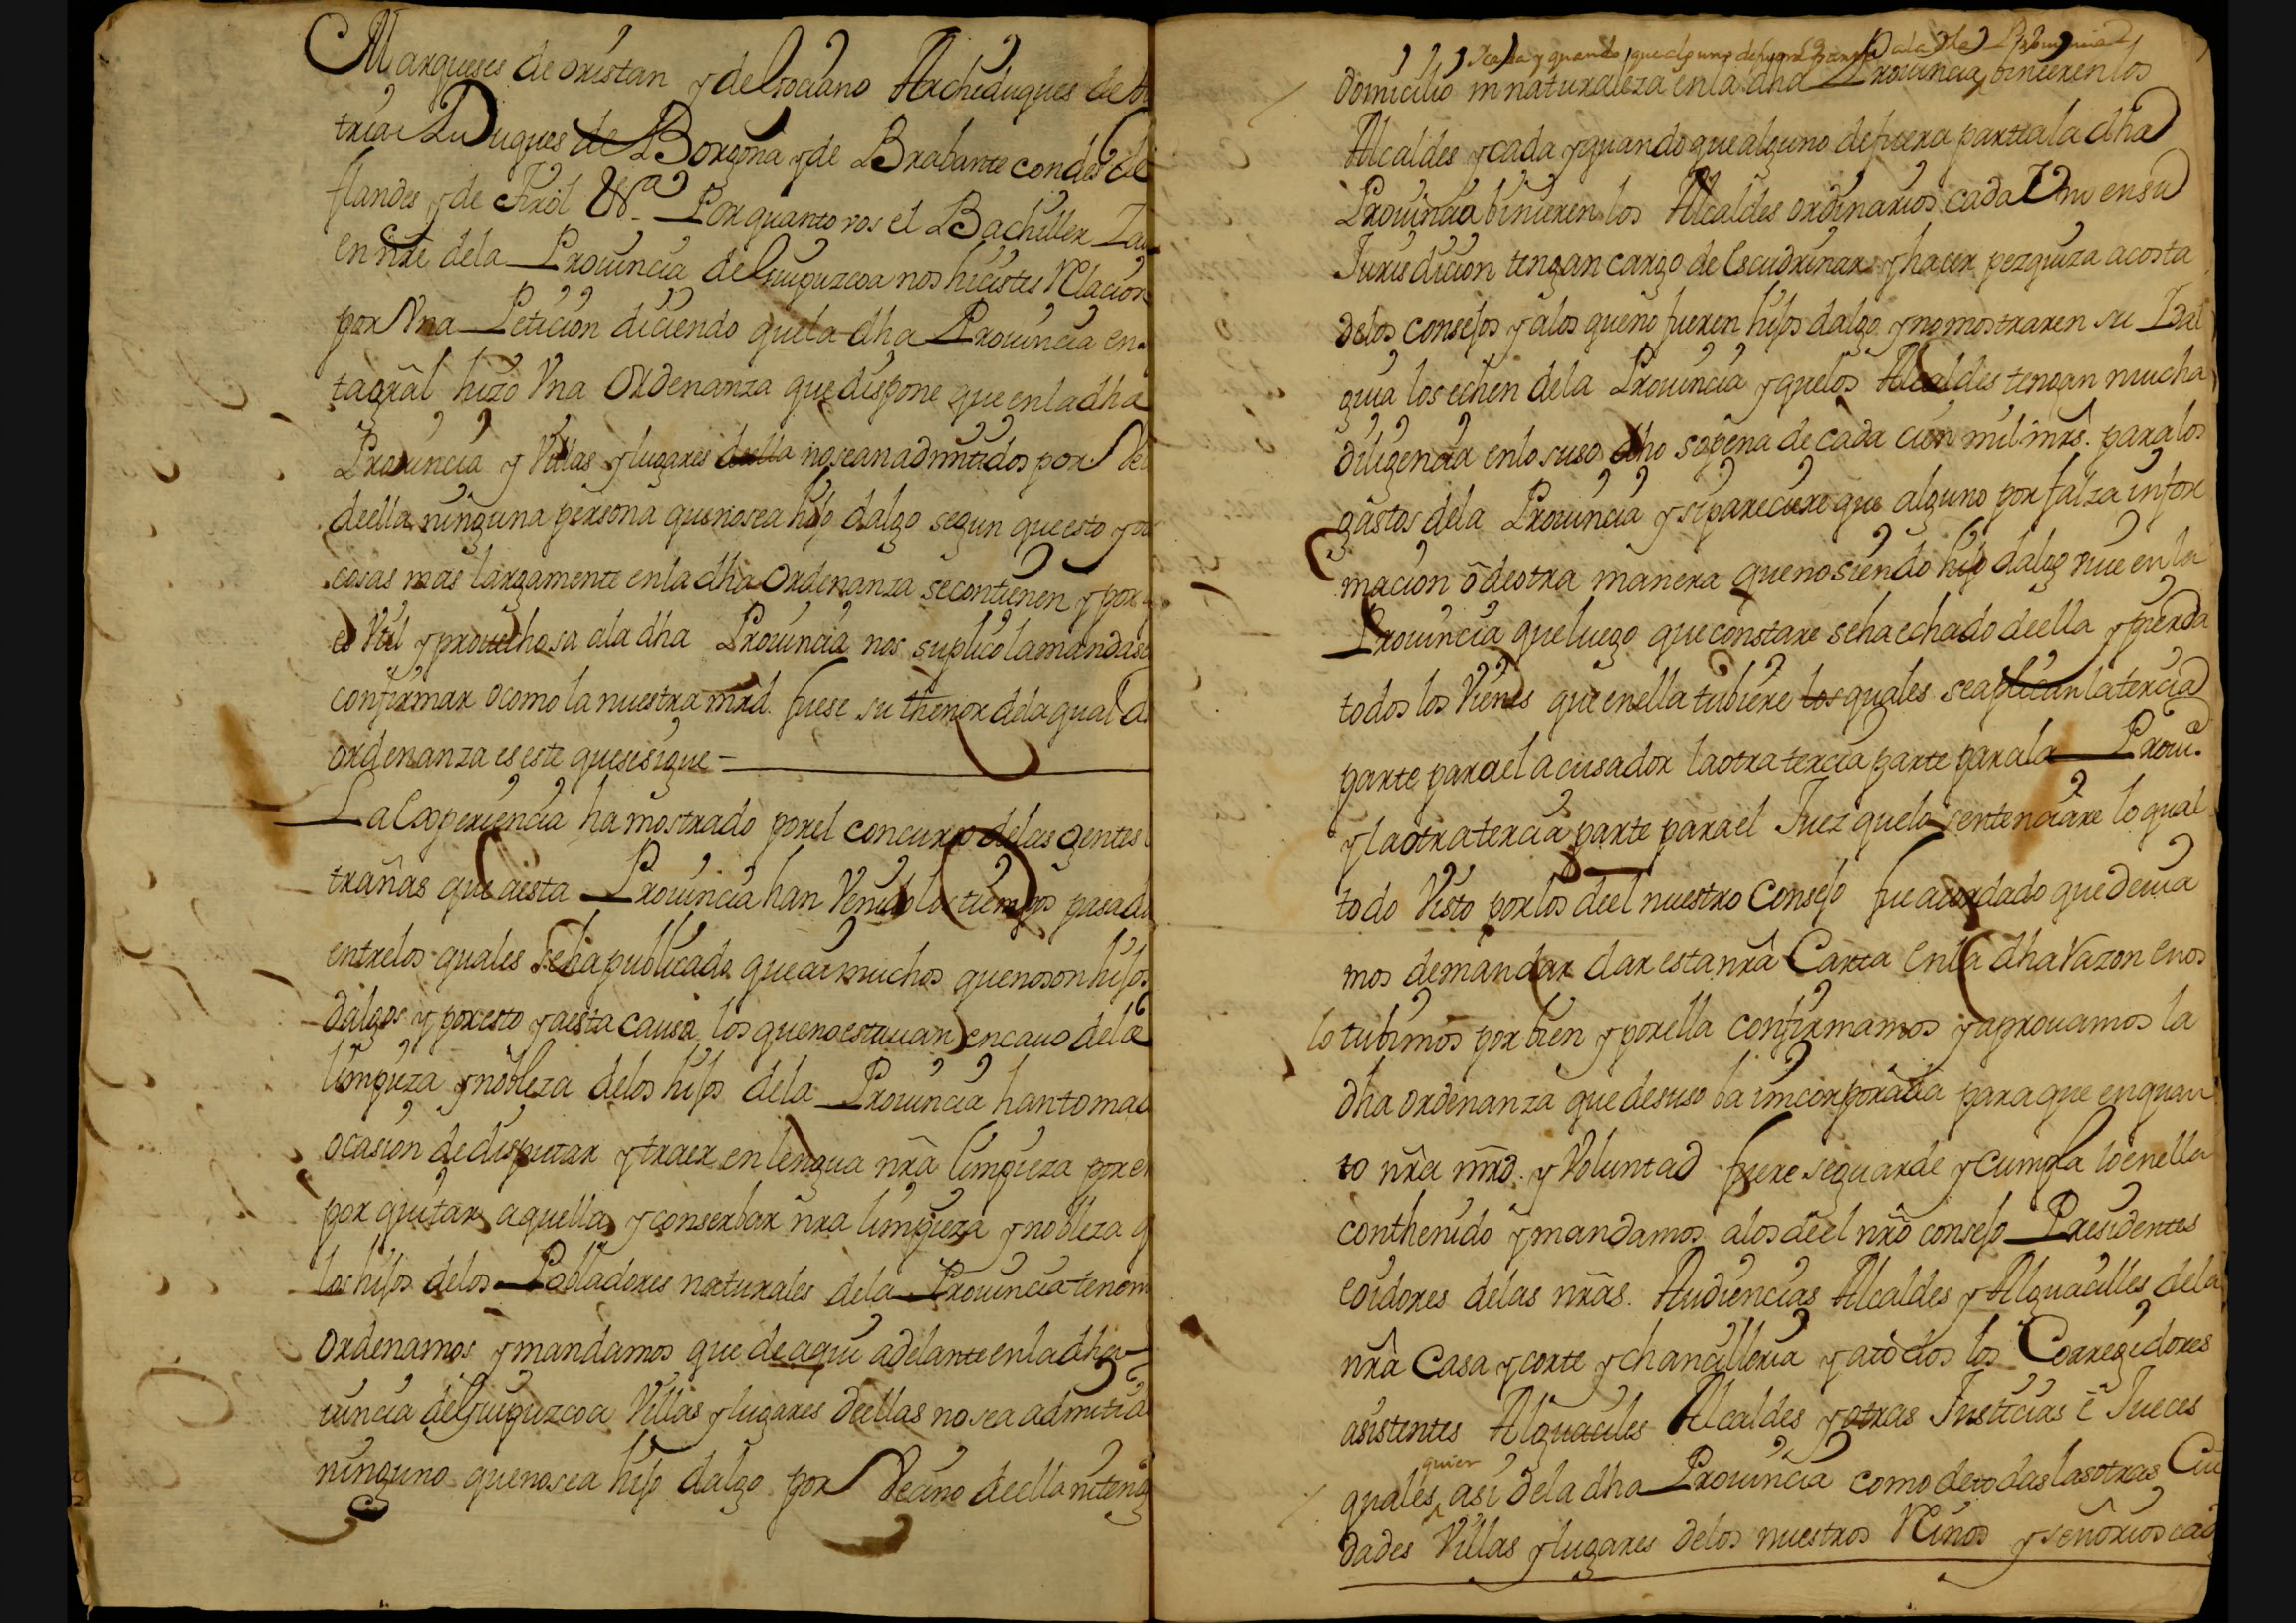 Marqueses de oristan y de Gociano Archeduques de Au
tria Duques de Borgoña y de Brabante condes de
flandes y de Tirol &ª Por quanto vos el Bachiller Za
en nr̃e dela Prouincia de Guipuzcoa nos hicistes Relacion
por Vna Peticion diciendo quela dha Prouincia en
ta gr̃al hizo Vna Ordenanza que dispone que enladha
Prouincia y Villas y lugares deella no sean admitidos por Ve
deella ninguna persona que no sea hijo dalgo segun que esto y
cosas mas largamente enla dha Ordenanza se contienen y por
es Vtil y prouechosa ala dha Prouincia nos suplico la mandase
confirmar o como la nuestra mr̃d. fuese su thenor dela qual d
ordenanza es este que se sigue –
La Experiencia ha mostrado por el concurso delas gentes
trañas que aesta Prouincia han Venido los tiempos pasado
entrelos quales se ha publicado que ai muchos que no son hijos
dalgo y por esto y aesta causa los que no estauan en cauo dela
limpieza y nobleza delos hijos dela Prouincia han tomad
ocasion de disputar y traer en lengua nr̃a limpieza por en
por quitar aquella y conserbar nr̃a limpieza y nobleza q
los hijos delos Pobladores naturales dela Prouincia tenem
ordenamos y mandamos que de aqui adelante enla dha
uincia de Guipuzcoa Villas y lugares deellas no sea admitid
ninguno que no sea hijo dalgo por Vecino deella ni teng
Y cada y quando que alguno de fuera parte ala dha Prouincia
domicilio in naturaleza enla dha Prouincia binieren los
Alcaldes y cada y quando que alguno de fuera parte ala dha
Prouincia binieren los Alcaldes ordinarios cada Vno en su
Jurisdicion tengan cargo de Escudrinar y hacer pezquiza acosta
delos consejos y alos que no fueren hijos dalgo y no mostraren su Ydal
guia los echen dela Prouincia y quelos Alcaldes tengan mucha
diligencia enlo suso dho so pena de cada cien mil mr̃s. para los
gastos dela Prouincia y si pareciere que alguno por falza infor
macion ô de otra manera que no siendo hijo dalgo viue en la
Prouincia que luego que constare seha echado deella y pierda
todo los Vienes que en ella tubiere los quales se aplican la tercia
parte para el acusador la otra tercia parte para la Prou.ª
y la otra tercia parte para el Juez quelo sentenciare lo qual
todo Visto por los deel nuestro Consejo fue acordado que deuia
mos de mandar dar esta nr̃a Carta enla dha Razon enos
lo tubimos por bien y por ella confirmamos y aprouamos la
dha ordenanza que de suso ba imcorporada para que en quan
to nr̃a mr̃d. y Voluntad fuere se guarde y cumpla lo en ella
conthenido y mandamos alos deel nr̃o consejo Presidentes
eoidores delas nr̃as. Audiencias Alcaldes y Alguacilles dela
nr̃a Casa y corte y chancilleria y atodos los Corregidores
asistentes Alguaciles Alcaldes y otras Justicias ê Jueces
quales quier asi dela dha Prouincia como de todas las otras Ciu
dades Villas y lugares delos nuestros Reinos y señorios cad